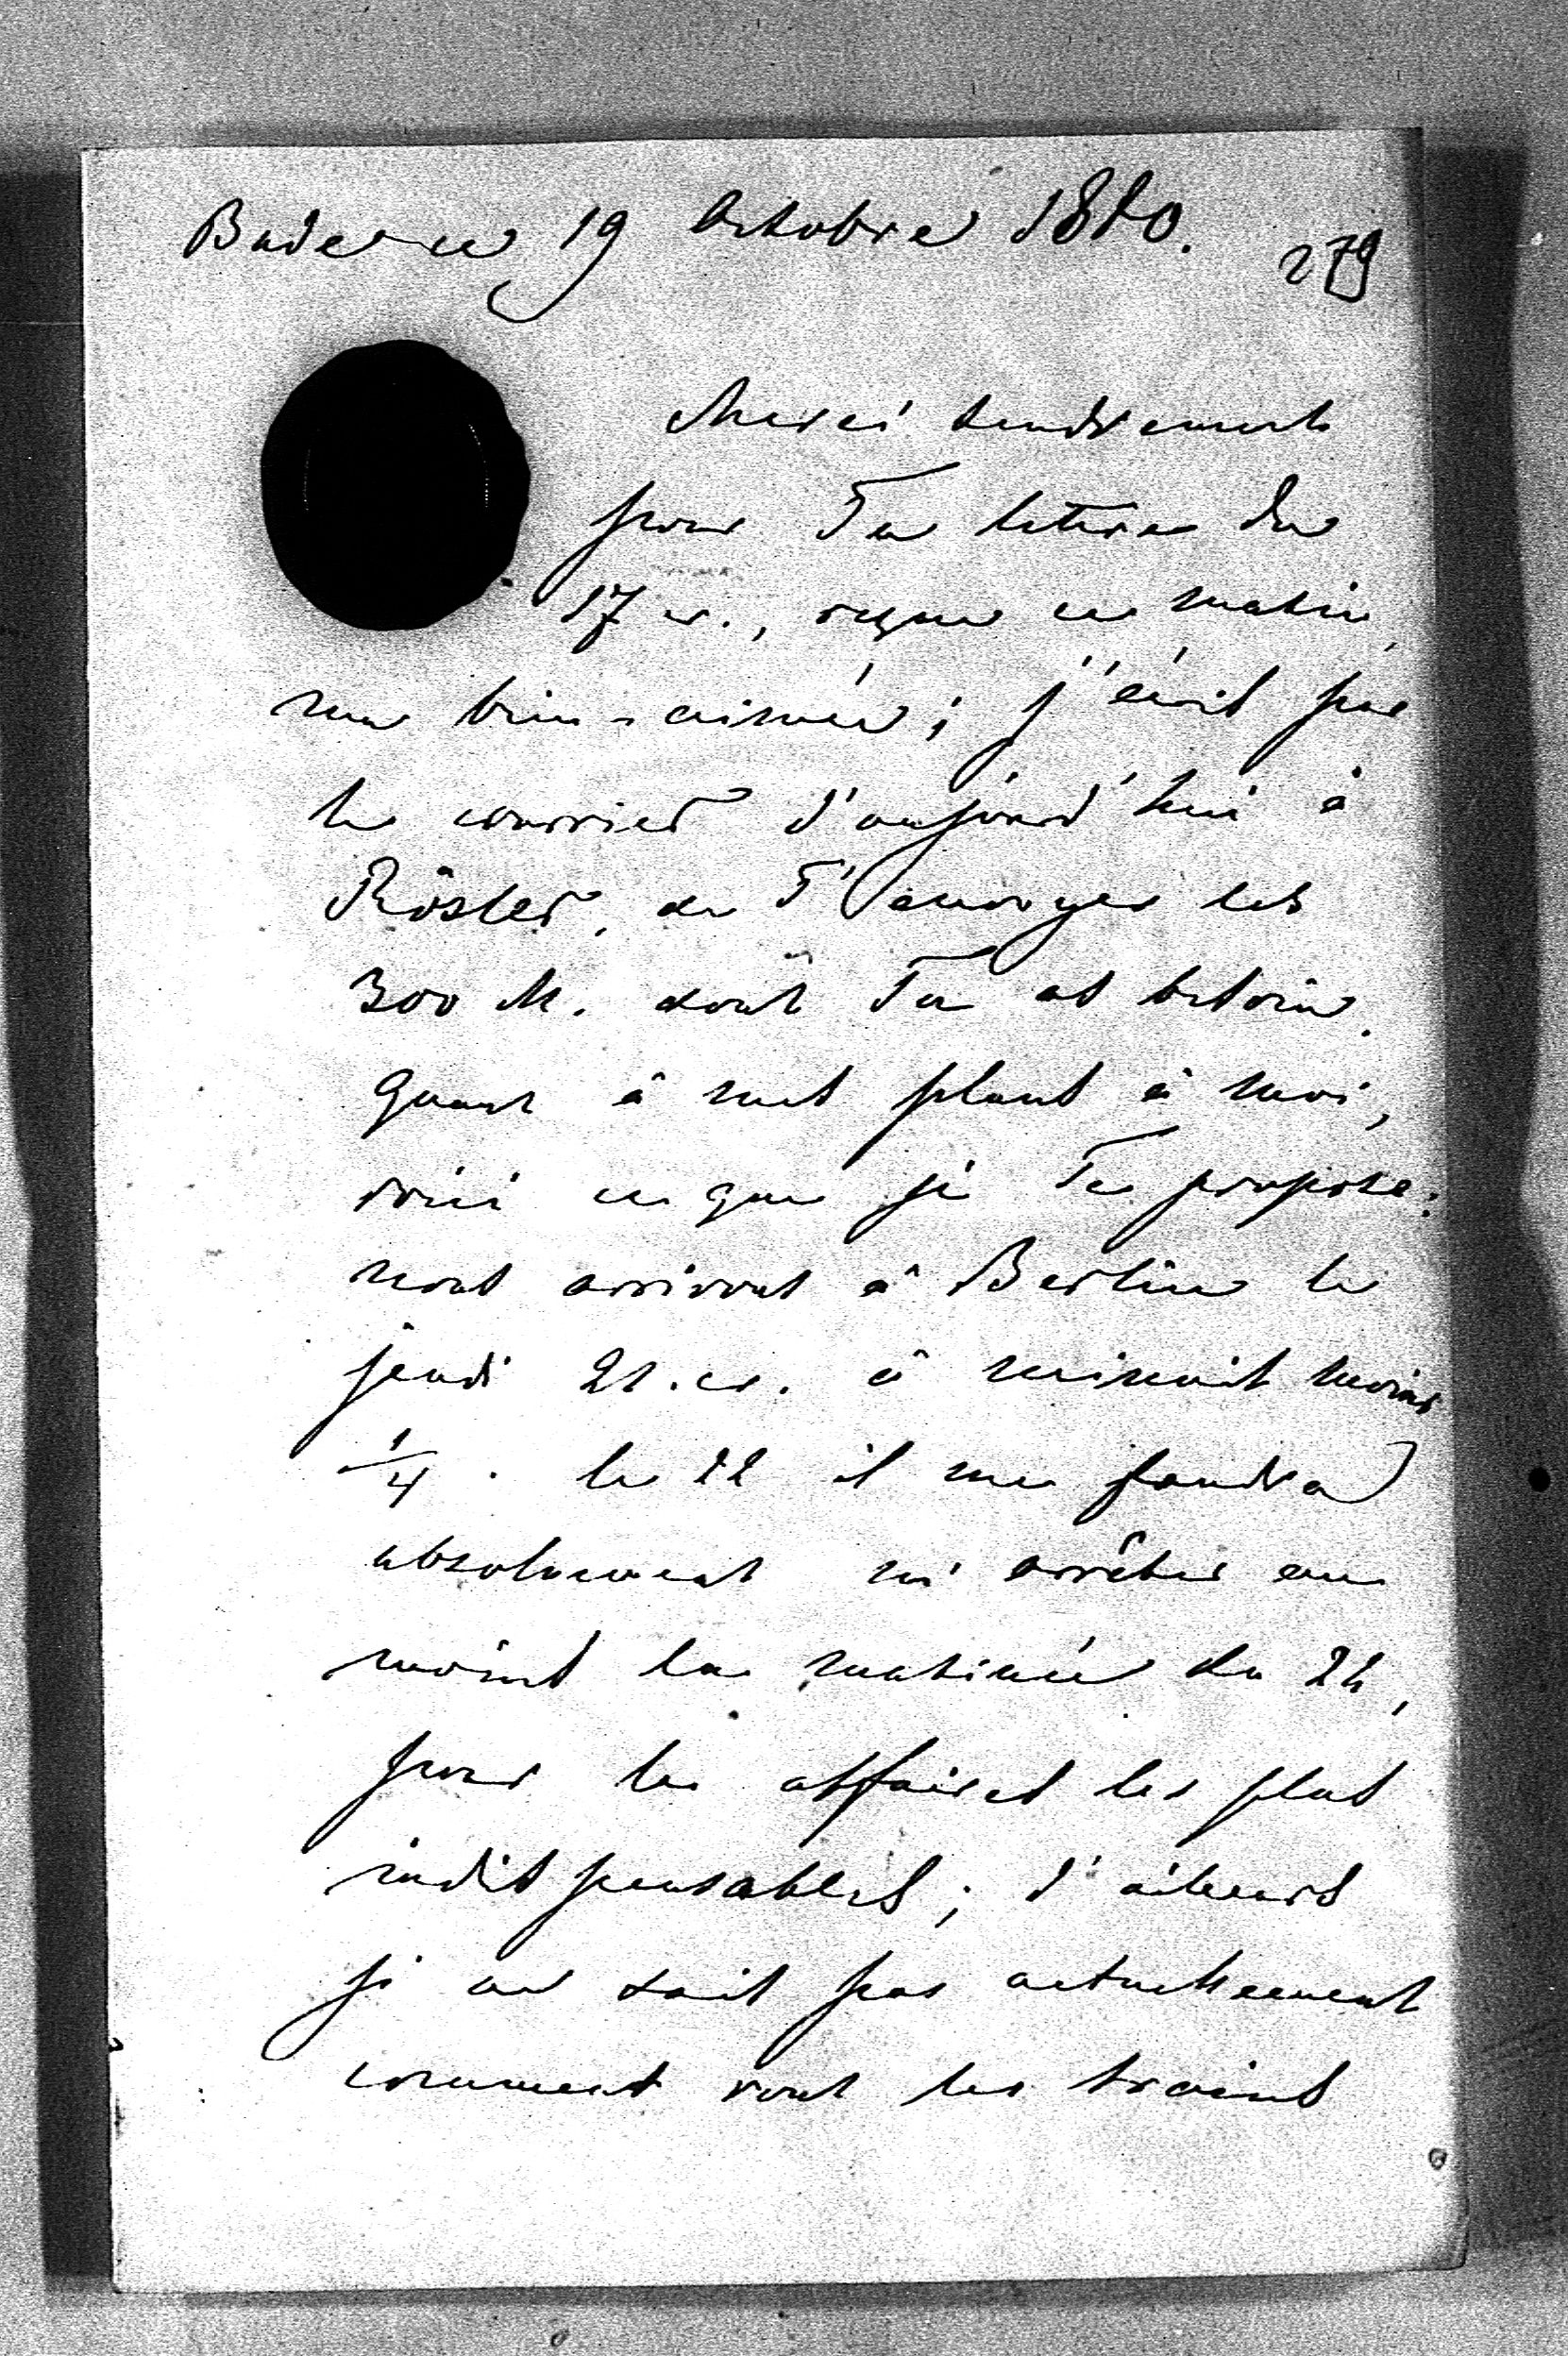 Bade ce 19 Octobre 1880.
279
Merci tendrement
pour Ta lettre du
17 cr., reçue ce matin,
ma bien-aimée; j'écris par
le courrier d'aujourd'hui à
Röster, de T'envoyer les
300 M. dont Tu as besoin.
Quant à mes plans à moi,
voici ce que je Te propose:
nous arrivons à Berlin le
jeudi 21.cr. à minuit moins
1/4. le 22 il me faudra
absolument m'arrêter au
moins la matinée du 22,
pour les affaires les plus
indispensables; d'ailleurs
je ne sais pas actuellement
comment vont les trains